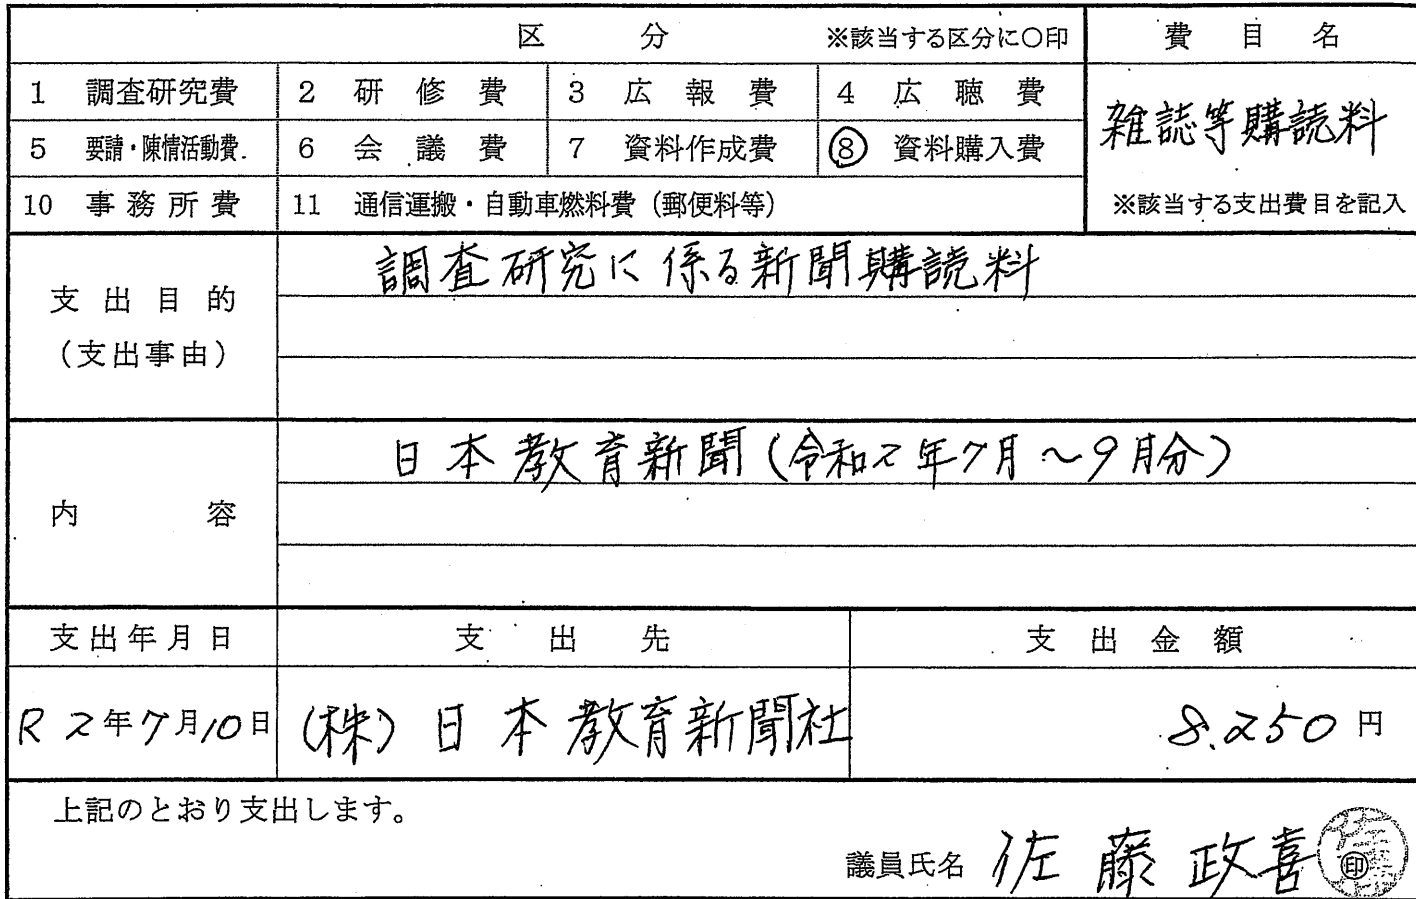 区 分 ※該当する区分に○印 費 目 名
1 調査研究費 2 研 修 費 3 広 報 費 4 広 聴 費
雑誌等購読料
5 要請・陳情活動費 6 会 議 費 7 資料作成費 ⑧ 資料購入費
10 事務所費 11 通信運搬・自動車燃料費（郵便料等） ※該当する支出費目を記入
調査研究に係る新聞購読料
支出目的
（支出事由）
日本教育新聞(令和2年7月～9月分)
内 容
支出年月日 支 出 先 支 出 金 額
R2年7月10日 (株)日本教育新聞社 8.250円
上記のとおり支出します。
議員氏名 佐藤政喜 印